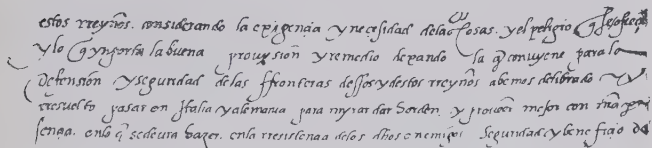 estos rreyños. considerando la exigençia y neçesidad delas cosas. y el peligro q̃ se ofreçe
y lo q̃ ynporta la buena provysion y rremedio dexando la q̃ convyene para la
defension y seguridad de las ffronteras dessos y destos rreyños abemos deliberado y
rresuelto pasar en ytalia y alemania para myrar dar horden. y proveer mejor con nr̃a pre
sençia. en lo q̃ se devra hazer. en la rresistençia delos dhos enemigos seguridad y benefiçio de